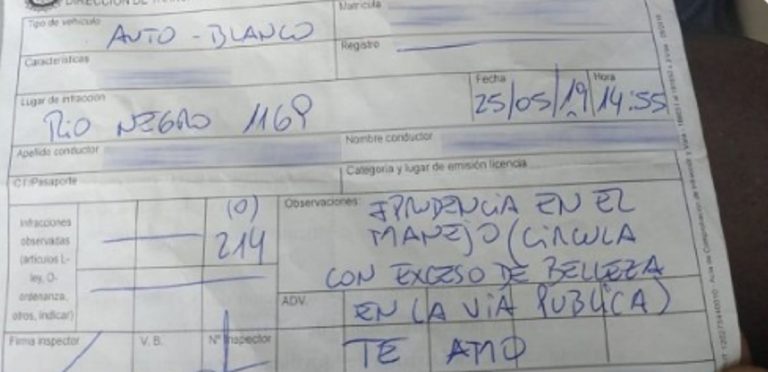 DIRECCIÓN DE
Tipo de vehículo
AUTO - BLANCO
Matrícula
Características
Registro
Lugar de infracción
RIO NEGRO 1169
Fecha
25/05/19
Hora
14:55
Apellido conductor
Nombre conductor
C.I./Pasaporte
Categoría y lugar de emisión licencia
Infracciones
observadas
(artículos L-
ley, O-
ordenanza,
otros, indicar)
(0)
214
Observaciones:
IPRUDENCIA EN EL
MANEJO (CIRCULA
CON EXCESO DE BELLEZA
EN LA VIA PUBLICA)
ADV.
TE AMO
Firma inspector
V. B.
Nº Inspector